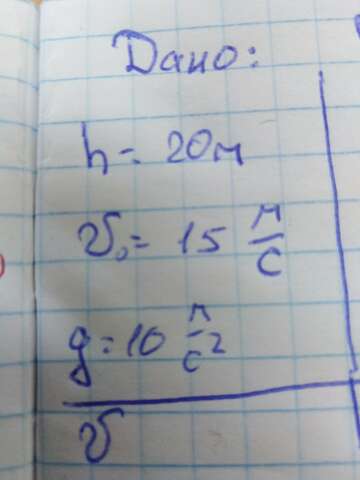 Дано:
h = 20м
υ₀ = 15 м/с
g = 10 м/с²
υ